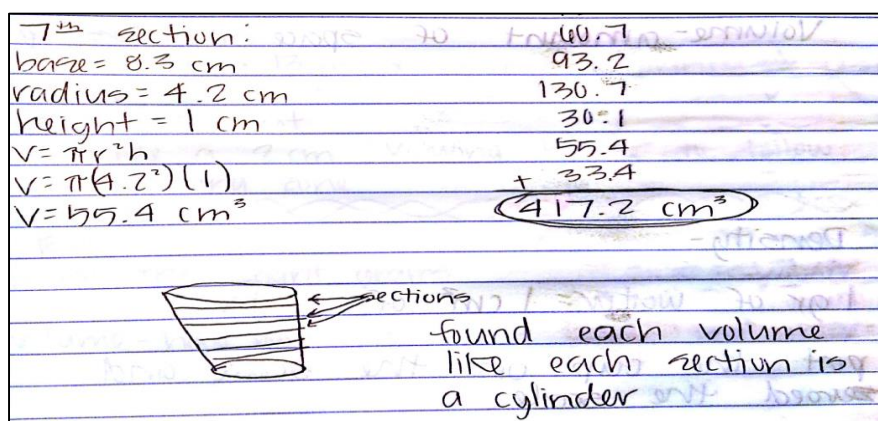 7th section:
base = 8.3 cm
radius = 4.2 cm
height = 1 cm
V = πr²h
V = π(4.2²)(1)
V = 55.4 cm³
93.2
130.7
30.1
55.4
+ 33.4
417.2 cm³
sections
found each volume
like each section is
a cylinder